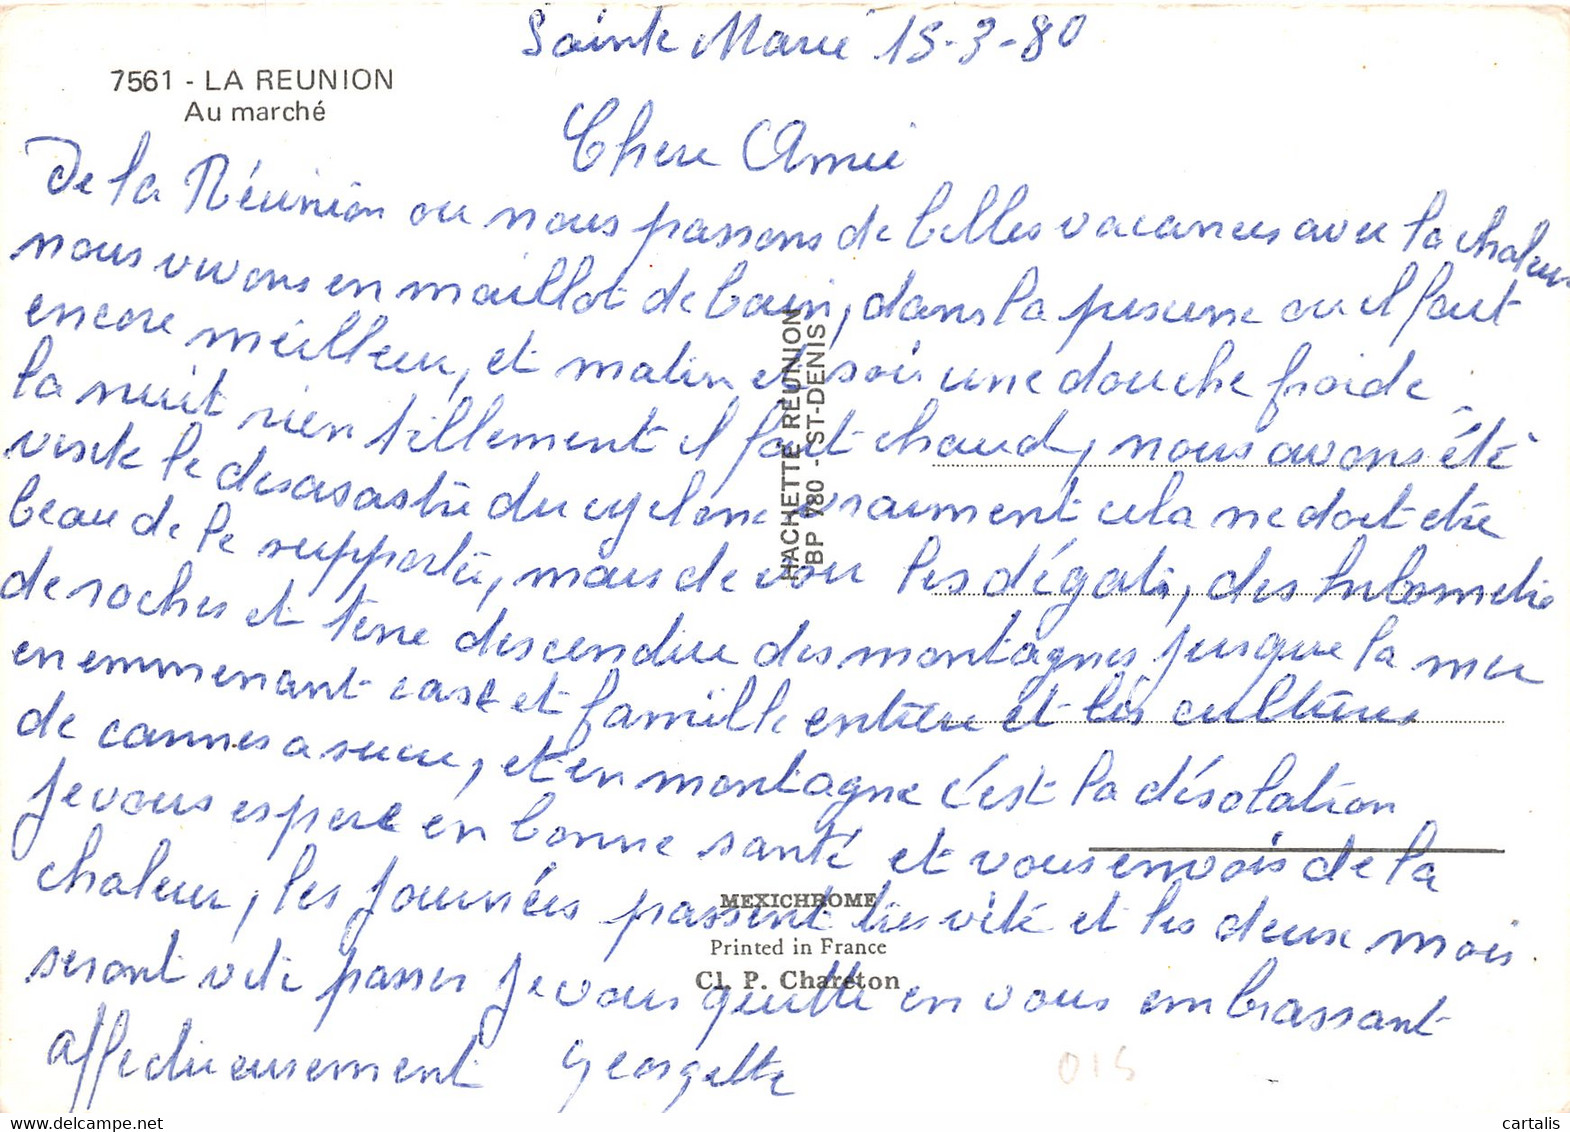 Sainte Marie 15-3-80
7561 - LA REUNION
Au marché
Chere Amie
De la Réunion ou nous passons de belles vacances avec la chaleur
nous vivons en maillot de bain, dans la piscine ou il fait
encore meilleur, et matin et soir une douche froide,
la nuit rien tellement il fait chaud, nous avons été
visite le desasastre du cyclone vraiment cela ne doit etre
beau de le supporter, mais de voir les dégats, des kilometre
de roches et terre descendue des montagnes jusque la mer
en emmenant case et famille entiere et les cultures
de cannes a sucre, et en montagne c'est la désolation
Je vous espere en bonne santé et vous envois de la
chaleur, les journées passent tres vite et les deux mois.
seront vite passer je vous quitte en vous embrassant
affectieusement Georgette
HACHETTE REUNION
BP 780 - ST-DENIS
MEXICHROME
Printed in France
Cl. P. Chareton
015
cartalis